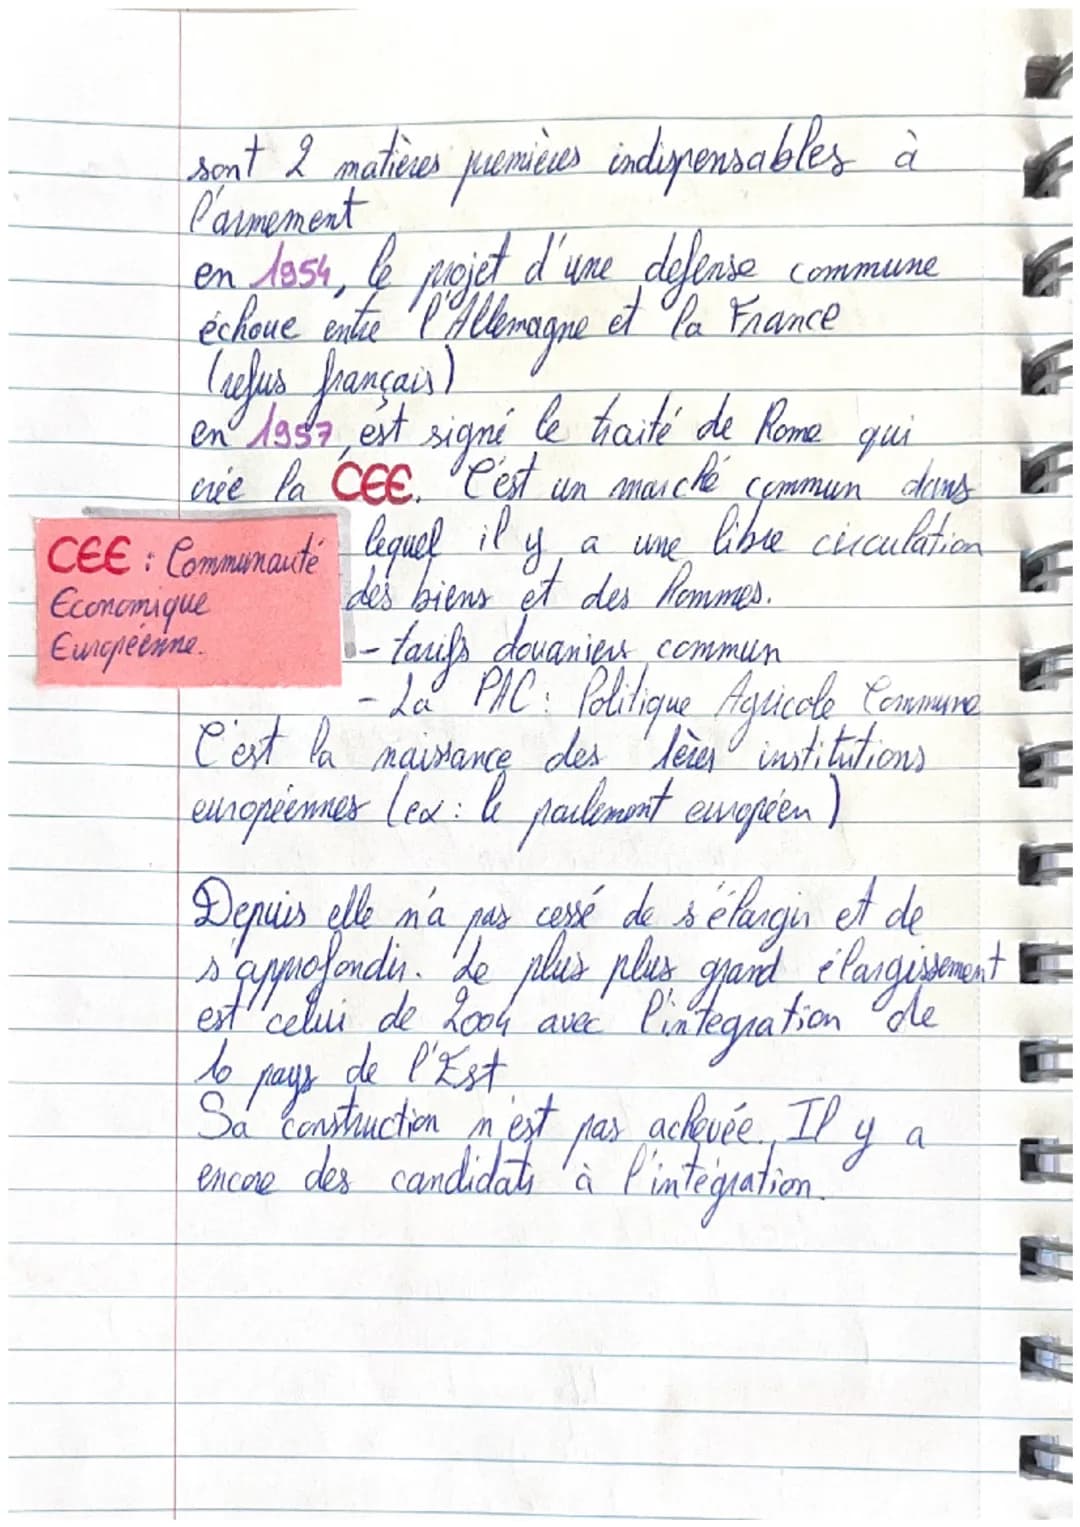 sont 2 matières premières indispensables à
l'armement
en 1954, le projet d'une defense commune
échoue entre l'Allemagne et la France
(refus français)
en 1957, est signé le traité de Rome qui
crée la CEE. C'est un marché commun dans
lequel il y a une libre circulation
des biens et des hommes.
- tarifs douaniers commun
- La PAC : Politique Agricole Commune
CEE : Communauté
Economique
Européenne.
C'est la naissance des 1ères institutions
européennes (ex : le parlement européen)
Depuis elle n'a pas cessé de s'élargir et de
s'approfondir. Le plus plus grand élargissement
est celui de 2004 avec l'intégration de
10 pays de l'Est
Sa construction n'est pas achevée. Il y a
encore des candidats à l'intégration.